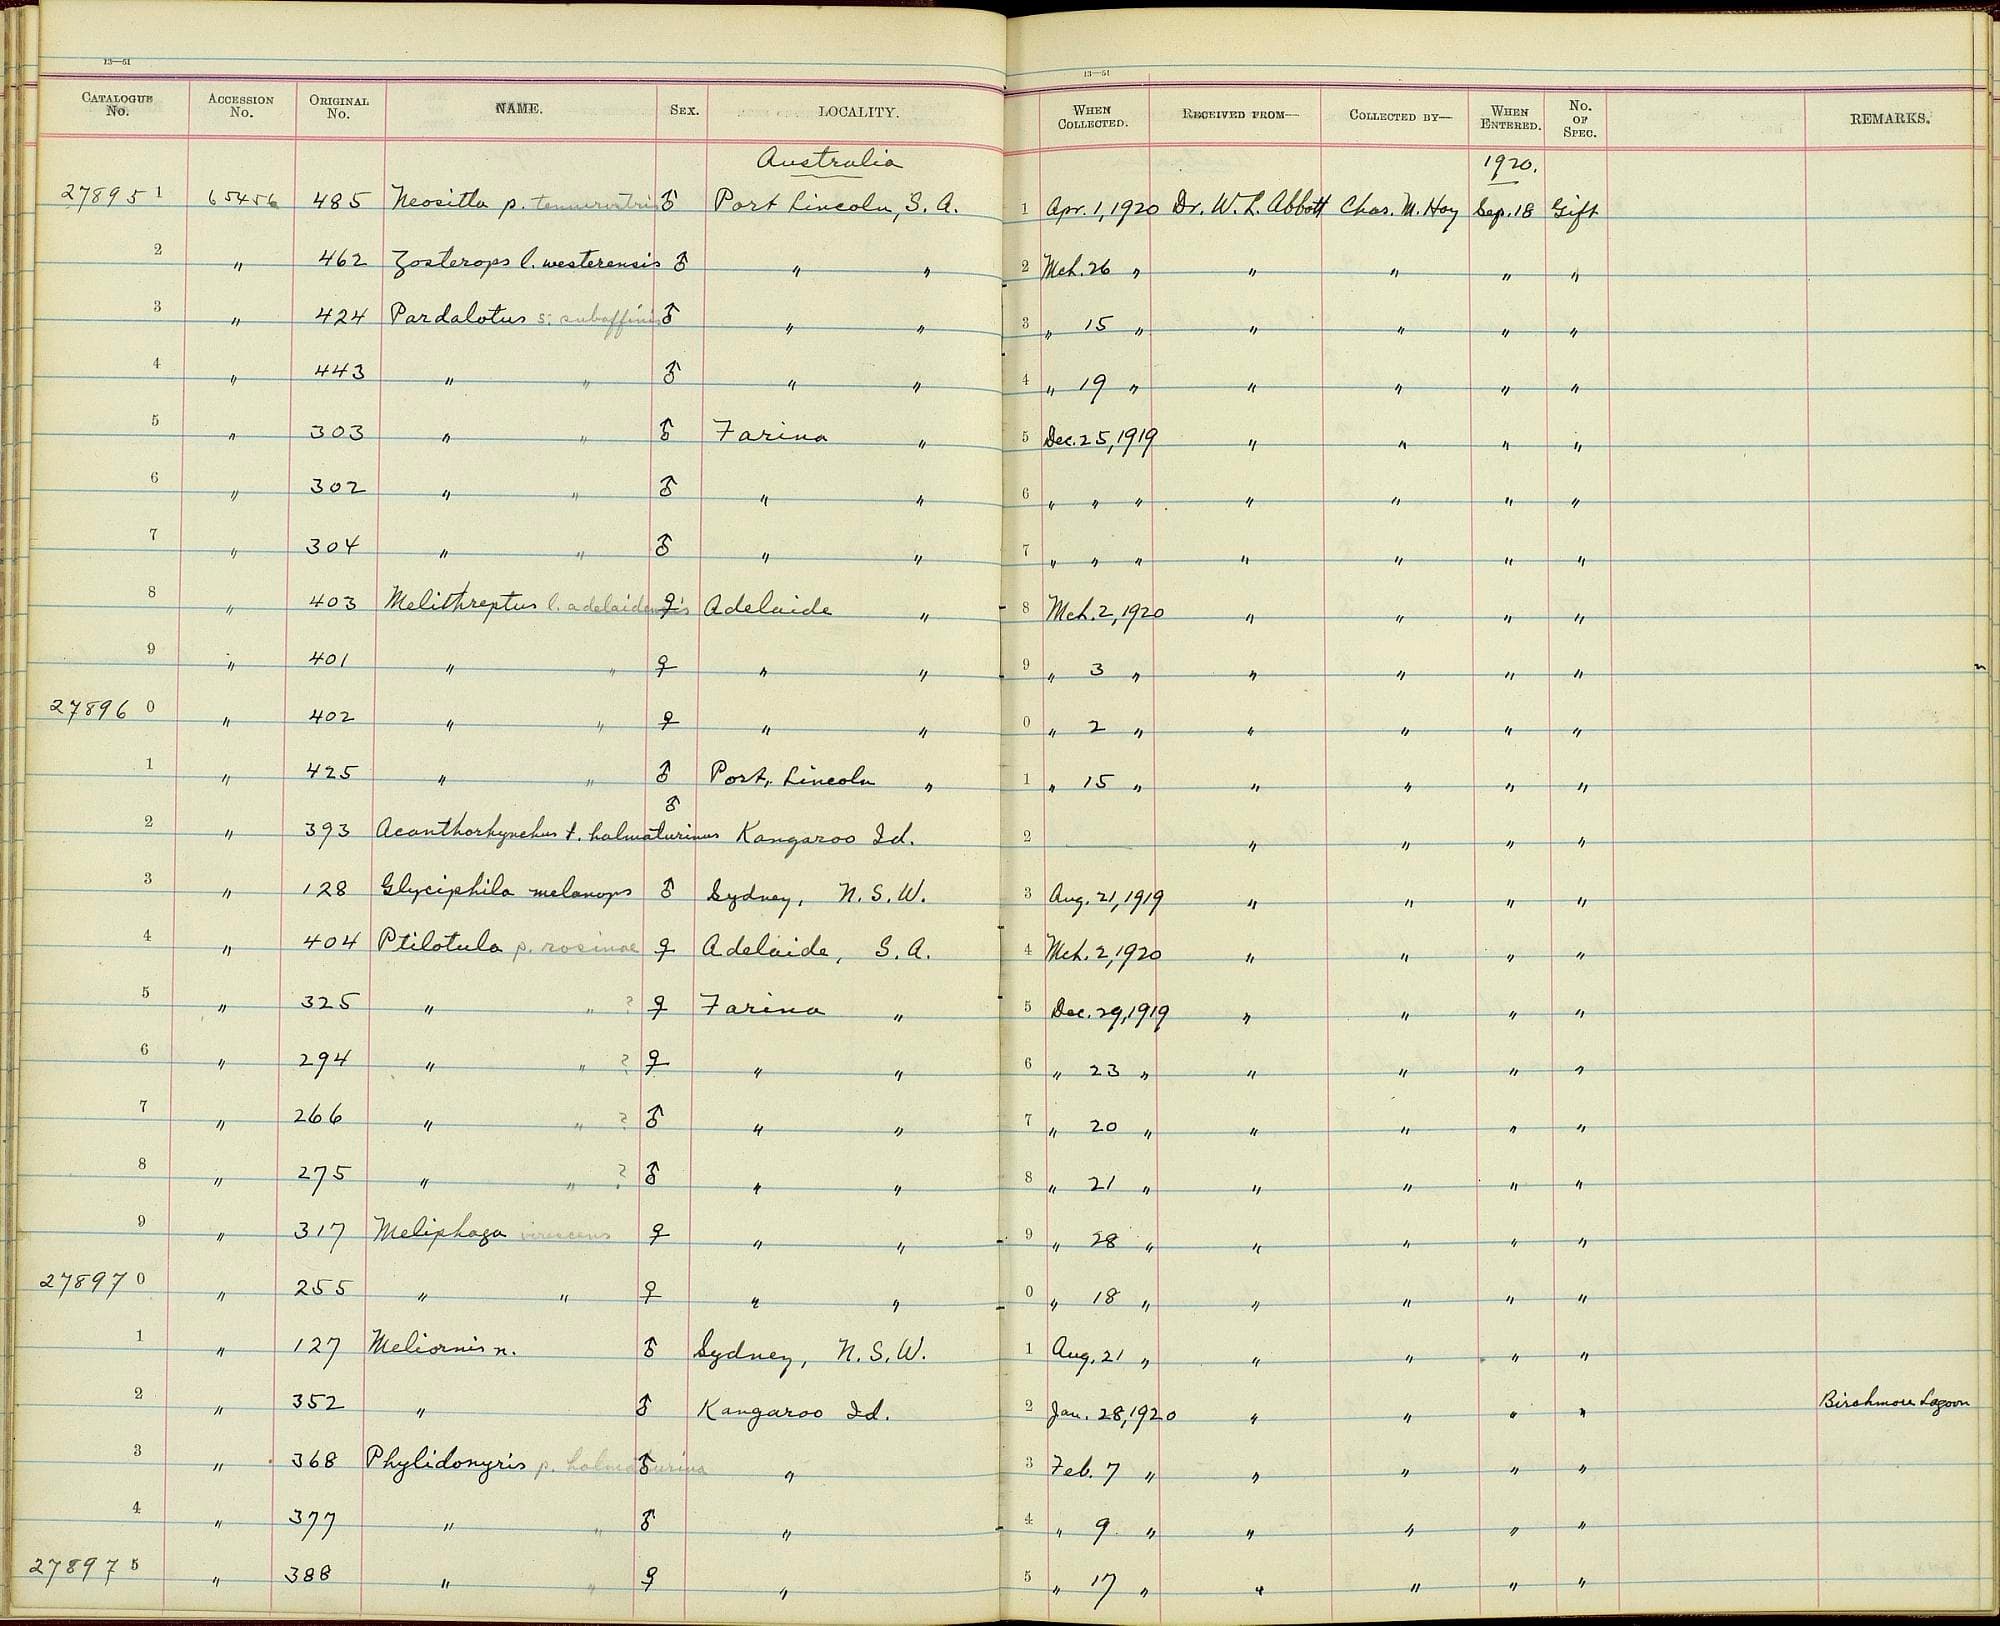 13—51 13—51
CATALOGUE No. ACCESSION No. ORIGINAL No. NAME. SEX. LOCALITY. WHEN COLLECTED. RECEIVED FROM— COLLECTED BY— WHEN ENTERED. No. OF SPEC. REMARKS.
Australia 1920.
27895 1 65456 485 Neositta p. tenuirostris ♂ Port Lincoln, S. A. 1 Apr. 1, 1920 Dr. W. L. Abbott Chas. M. Hoy Sep. 18 Gift
2 " 462 Zosterops l. westerensis ♂ " " 2 Mch. 26 " " " " "
3 " 424 Pardalotus s. subaffinis ♂ " " 3 " 15 " " " " "
4 " 443 " " ♂ " " 4 " 19 " " " " "
5 " 303 " " ♂ Farina " 5 Dec. 25, 1919 " " " "
6 " 302 " " ♂ " " 6 " " " " " " "
7 " 304 " " ♂ " " 7 " " " " " " "
8 " 403 Melithreptus l. adelaidensis ♀ Adelaide " 8 Mch. 2, 1920 " " " "
9 " 401 " " ♀ " " 9 " 3 " " " " "
27896 0 " 402 " " ♀ " " 0 " 2 " " " " "
1 " 425 " " ♂ Port Lincoln " 1 " 15 " " " " "
2 " 393 Acanthorhynchus t. halmaturinus ♂ Kangaroo Id. 2 " " " "
3 " 128 Glyciphila melanops ♂ Sydney, N. S. W. 3 Aug. 21, 1919 " " " "
4 " 404 Ptilotula p. rosinae ♀ Adelaide, S. A. 4 Mch. 2, 1920 " " " "
5 " 325 " " ? ♀ Farina " 5 Dec. 29, 1919 " " " "
6 " 294 " " ? ♀ " " 6 " 23 " " " " "
7 " 266 " " ? ♂ " " 7 " 20 " " " " "
8 " 275 " " ? ♂ " " 8 " 21 " " " " "
9 " 317 Meliphaga virescens ♀ " " 9 " 28 " " " " "
27897 0 " 255 " " ♀ " " 0 " 18 " " " " "
1 " 127 Meliornis n. ♂ Sydney, N. S. W. 1 Aug. 21 " " " " "
2 " 352 " ♂ Kangaroo Id. 2 Jan. 28, 1920 " " " " Birchmore Lagoon
3 " 368 Phylidonyris p. halmaturina ♂ " 3 Feb. 7 " " " " "
4 " 377 " " ♂ " 4 " 9 " " " " "
27897 5 " 388 " " ♀ " 5 " 17 " " " " "